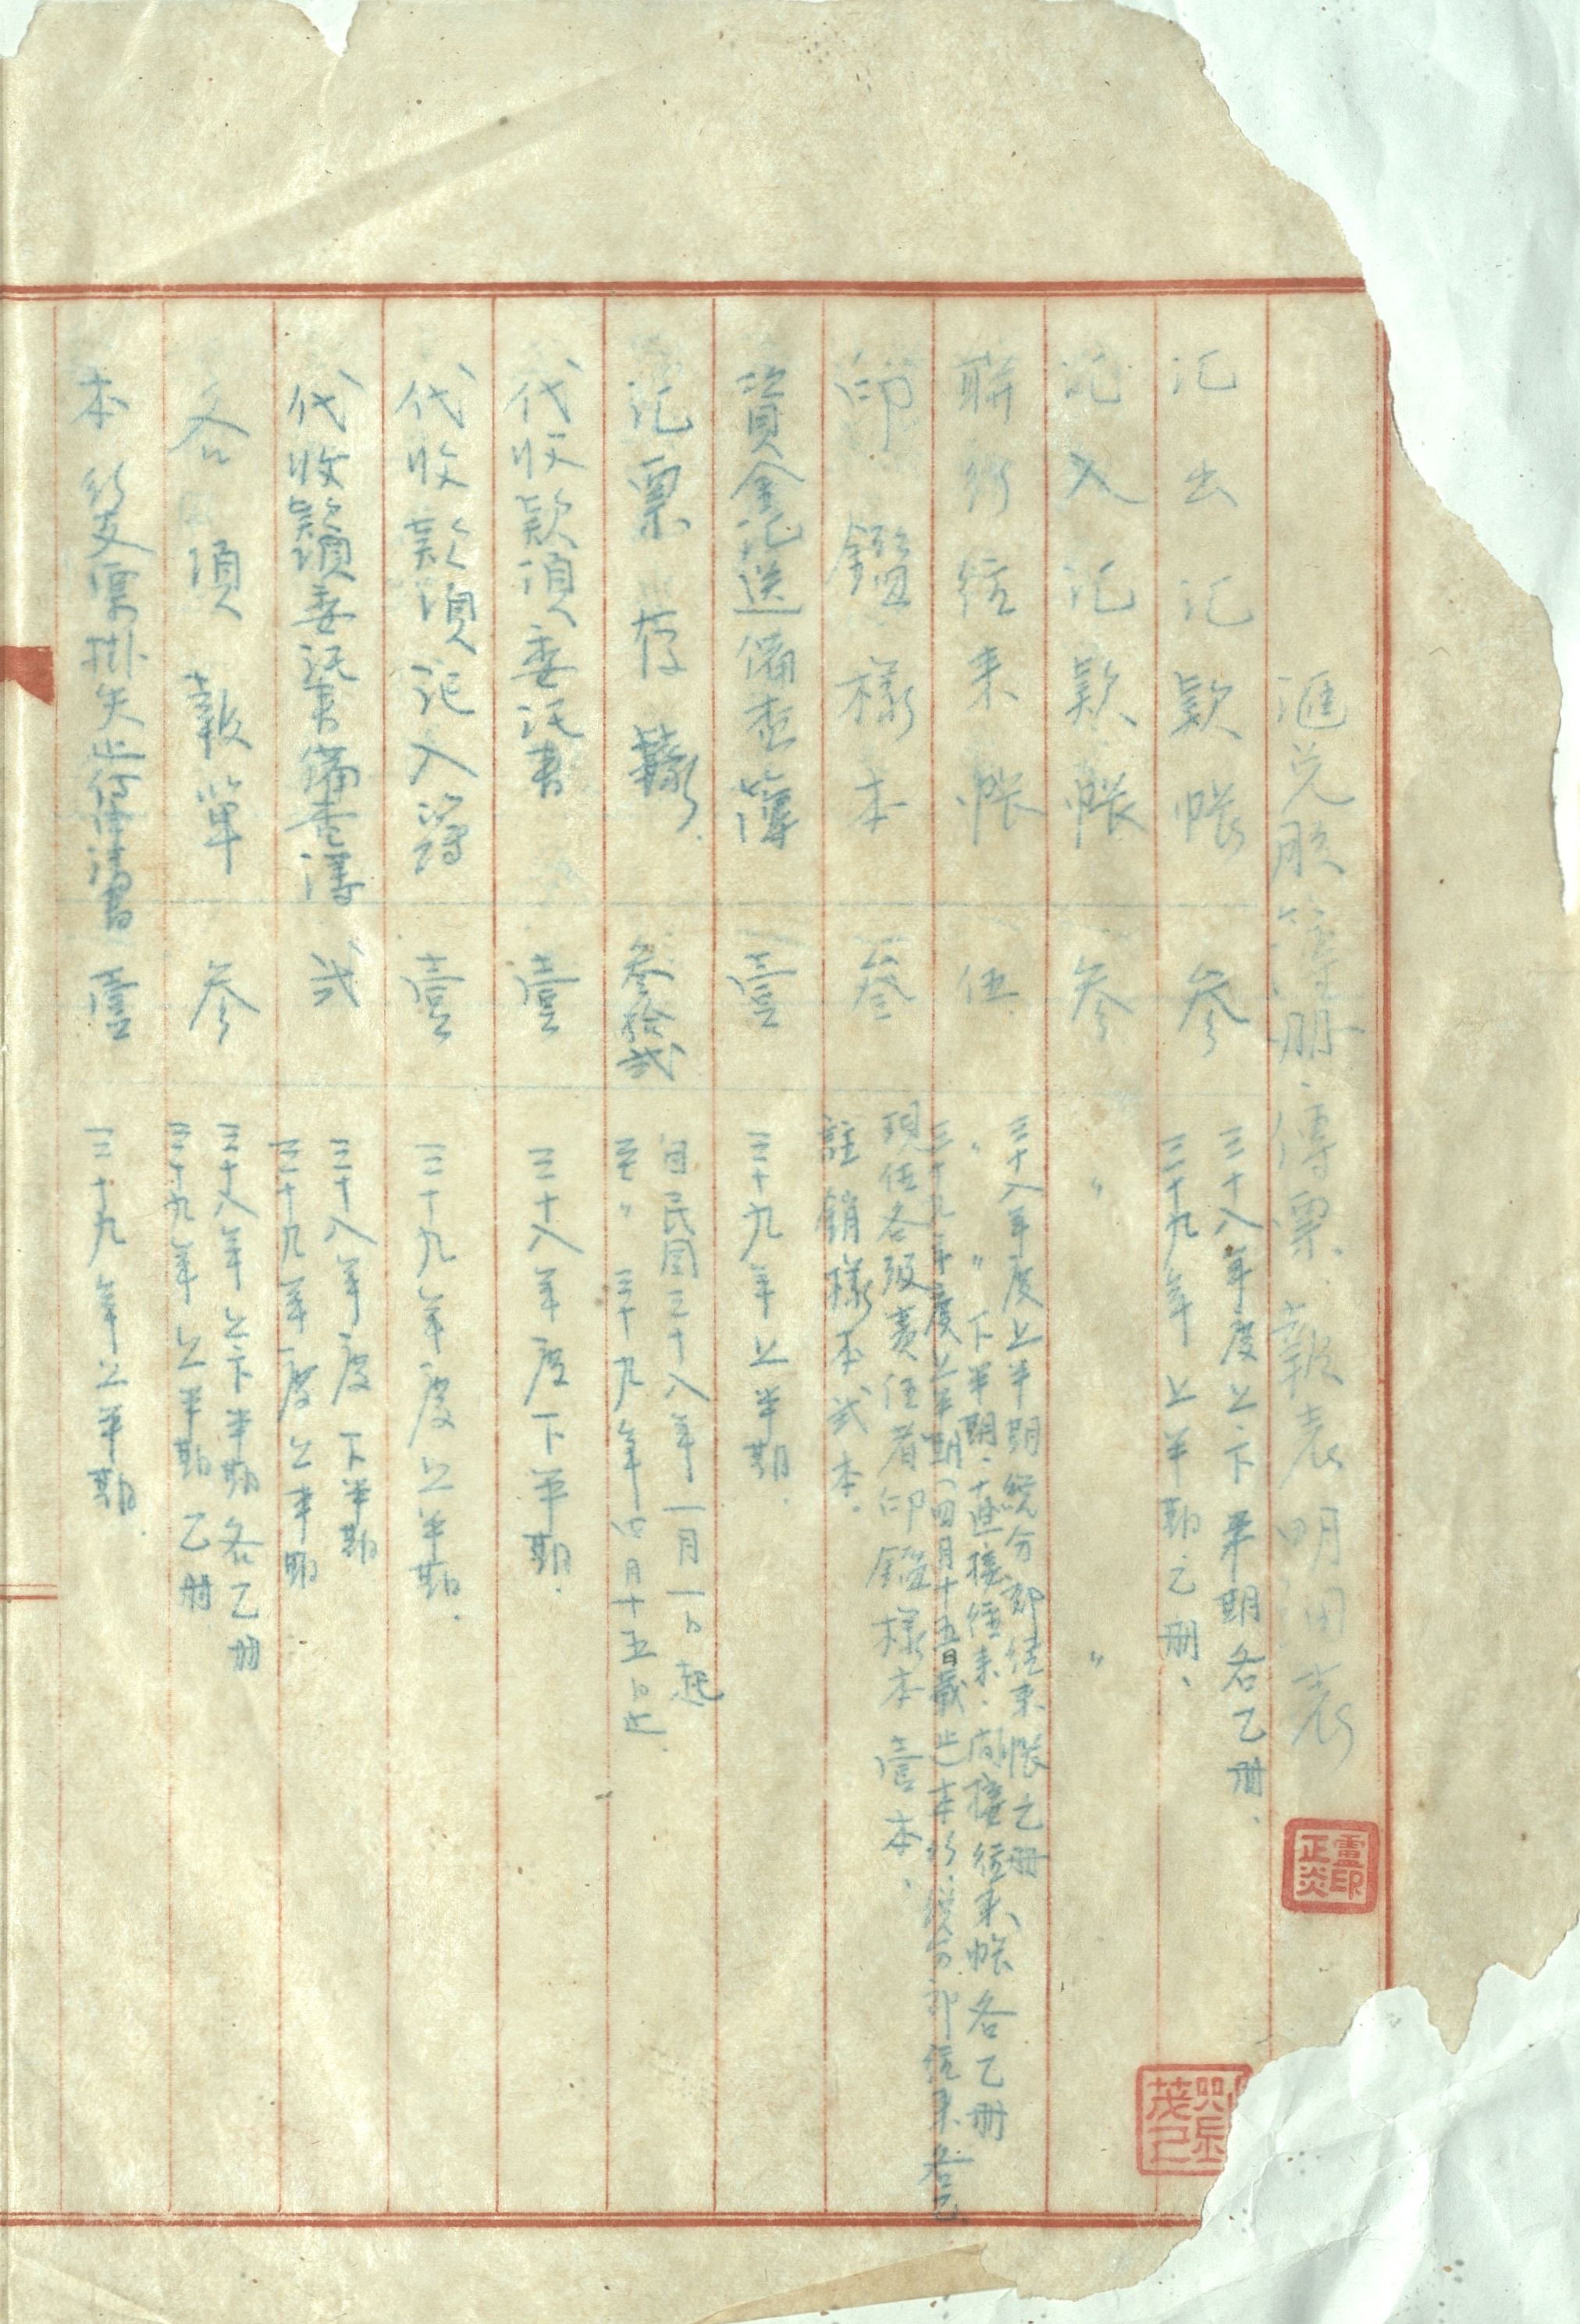 滙兌股簿册、傳票、報表明細表
盧印正炎
汇出汇款帐 参 三十八年度上下半期各乙册、
三十九年上半期乙册、
汇入汇款帐 参 〃 〃
聯行往来帐 伍 三十八年度上半期總分部往来帐乙册
〃 〃 下半期、直接往来、間接往来帐各乙册
三十九年度上半期(四月十五日截止本行、總分部往来各乙
印鑑樣本 叁 現任各級責任者印鑑樣本壹本、
註銷樣本弍本。
資金汇送備查簿 壹 三十九年上半期.
汇票存 参拾弍 自民國三十八年一月一日起
至〃 三十九年四月十五日止.
代收款項委託書 壹 三十八年度下半期.
代收款項记入簿 壹 三十九年度上半期.
代收款項委託書備查簿 弍 三十八年度下半期
三十九年度上半期
各項報單 参 三十八年上下半期各乙册
三十九年上半期乙册
本行支票掛失止付申請書 壹 三十九年上半期.